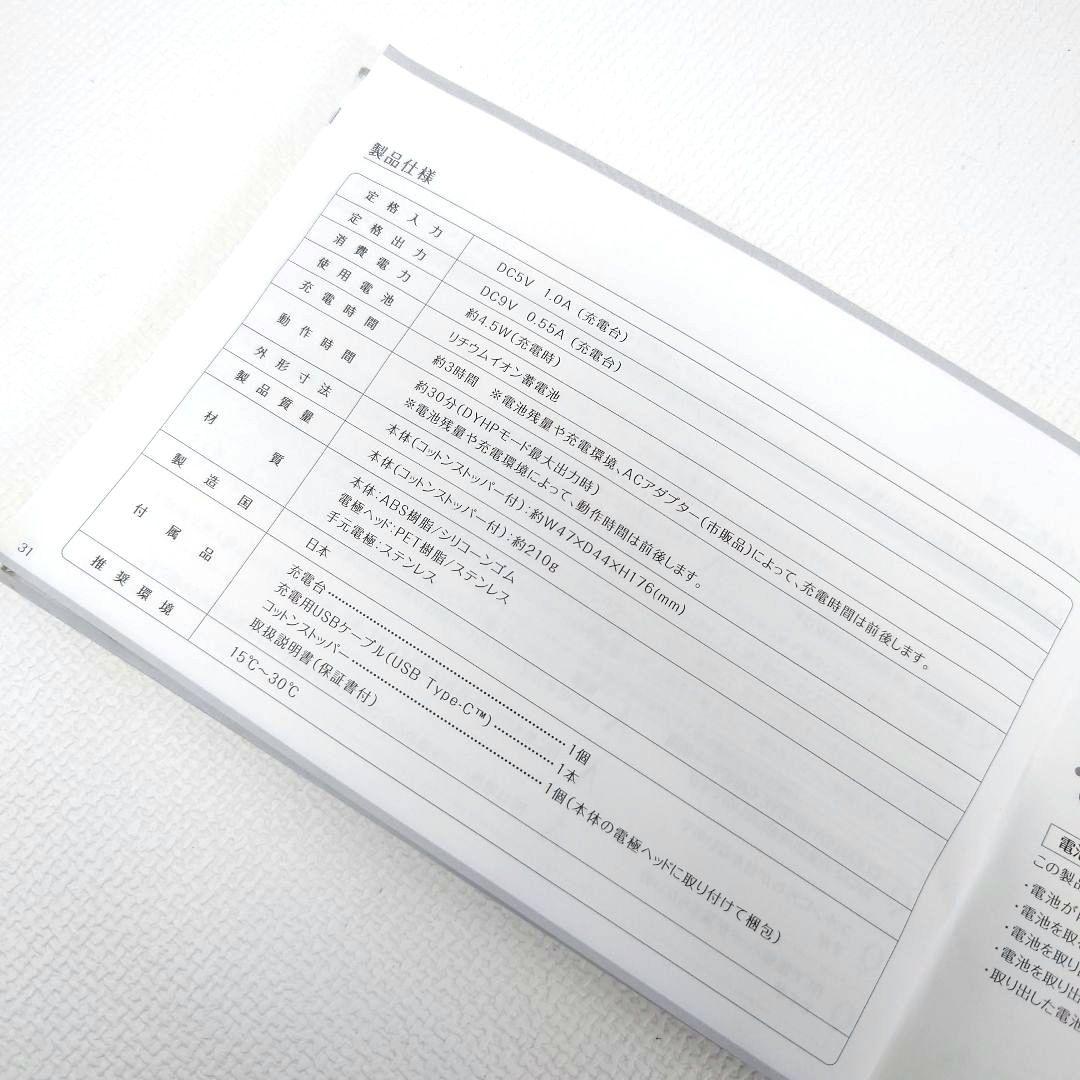 製品仕様
定格入力 DC5V 1.0A（充電台）
定格出力 DC9V 0.55A（充電台）
消費電力 約4.5W(充電時)
使用電池 リチウムイオン蓄電池
充電時間 約3時間 ※電池残量や充電環境、ACアダプター（市販品）によって、充電時間は前後します。
動作時間 約30分（DYHPモード最大出力時）
※電池残量や充電環境によって、動作時間は前後します。
外形寸法 本体（コットンストッパー付）：約W47×D44×H176(mm)
製品質量 本体（コットンストッパー付）：約210g
材質 本体：ABS樹脂/シリコーンゴム
電極ヘッド：PET樹脂/ステンレス
手元電極：ステンレス
製造国 日本
付属品 充電台 1個
充電用USBケーブル（USB Type-C™） 1本
コットンストッパー 1個（本体の電極ヘッドに取り付けて梱包）
取扱説明書（保証書付）
推奨環境 15℃～30℃
31
この製品
・電池が
・電池を取
・電池を取り
・電池を取り出
・取り出した電池